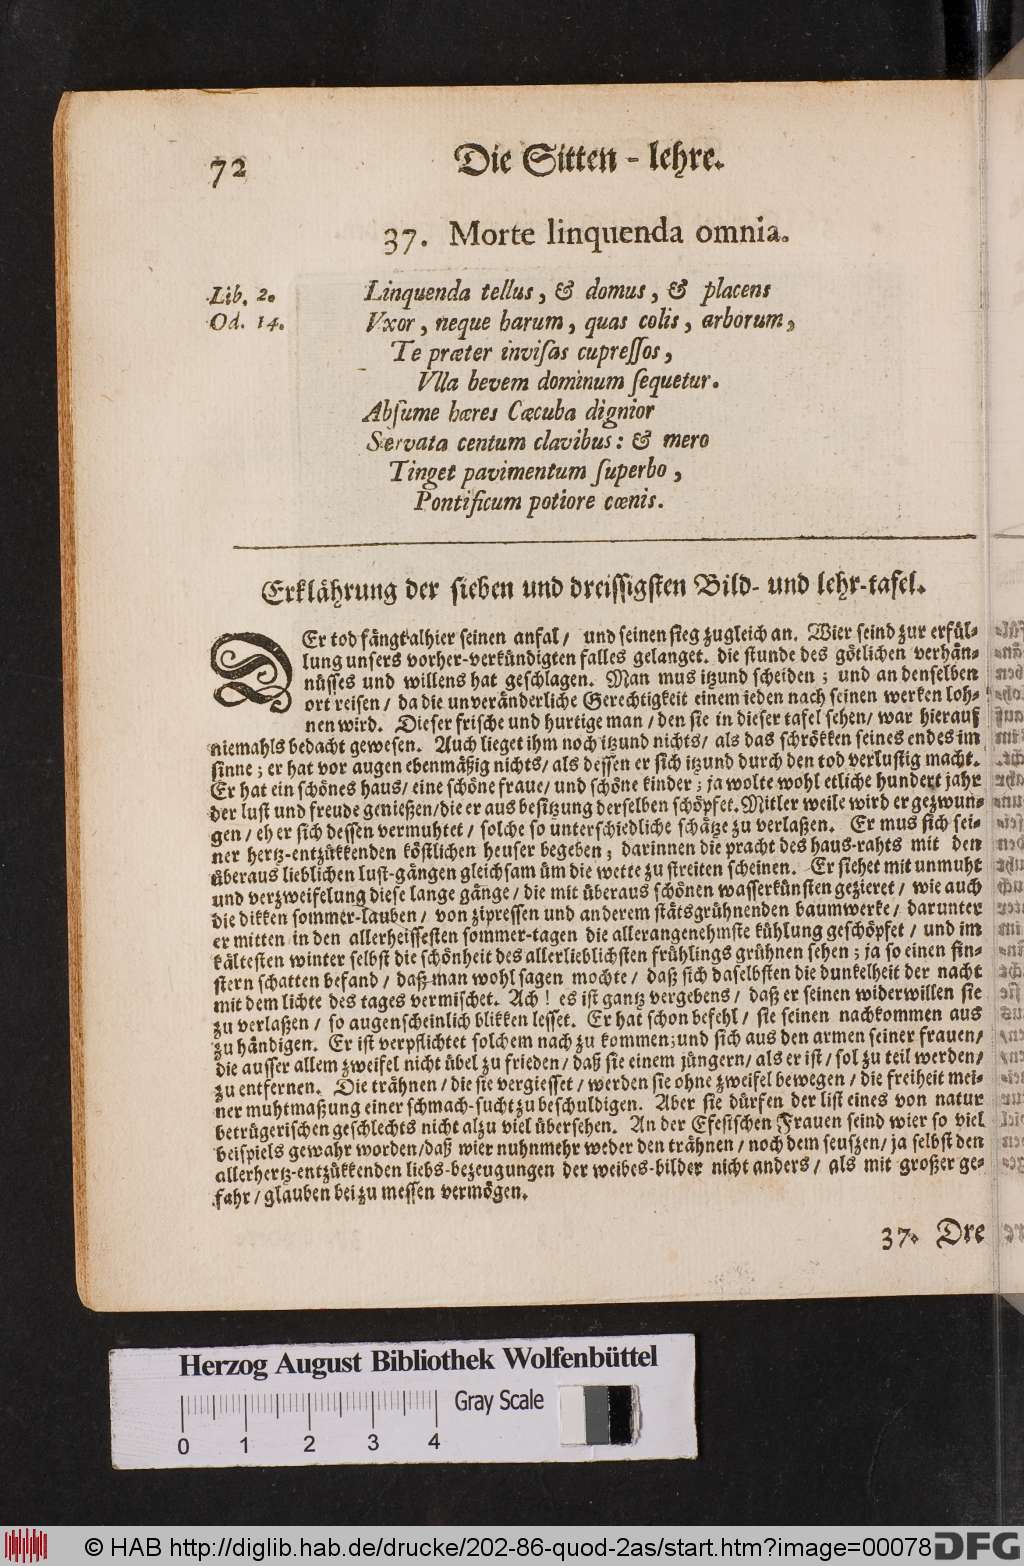 72
Die Sitten-lehre.
37. Morte linquenda omnia.
Lib. 2.
Od. 14.
Linquenda tellus, & domus, & placens
Vxor, neque harum, quas colis, arborum,
Te præter inviſas cupreſſos,
Vlla bevem dominum ſequetur.
Abſume hæres Cæcuba dignior
Servata centum clavibus: & mero
Tinget pavimentum ſuperbo,
Pontificum potiore cœnis.
Erklährung der sieben und dreissigſten Bild- und lehr-tafel.
DEr tod fängt alhier seinen anfal / und seinen sieg zugleich an. Wier seind zur erfül-
lung unsers vorher-verkündigten falles gelanget. die ſtunde des götlichen verhän-
nüsses und willens hat geschlagen. Man mus itzund scheiden; und an denselben
ort reisen / da die unveränderliche Gerechtigkeit einem ieden nach seinen werken loh-
nen wird. Dieser frische und hurtige man / den sie in dieser tafel sehen / war hierauf
niemahls bedacht gewesen. Auch lieget ihm noch itzund nichts / als das schrökken seines endes im
sinne; er hat vor augen ebenmäßig nichts / als dessen er sich itzund durch den tod verluſtig macht.
Er hat ein schönes haus / eine schöne fraue / und schöne kinder; ja wolte wohl etliche hundert jahr
der luſt und freude genießen / die er aus besitzung derselben schöpfet. Mitler weile wird er gezwun-
gen / eh er sich dessen vermuhtet / solche so unterschiedliche schätze zu verlaßen. Er mus sich sei-
ner hertz-entzükkenden köſtlichen heuser begeben; darinnen die pracht des haus-rahts mit den
überaus lieblichen luſt-gängen gleichsam üm die wette zu ſtreiten scheinen. Er siehet mit unmuht
und verzweifelung diese lange gänge / die mit überaus schönen wasserkünſten gezieret / wie auch
die dikken sommer-lauben / von zipressen und anderem ſtätsgrühnenden baumwerke / darunter
er mitten in den allerheissesten sommer-tagen die allerangenehmſte kühlung geschöpfet / und im
kälteſten winter selbſt die schönheit des allerlieblichſten frühlings grühnen sehen; ja so einen fin-
ſtern schatten befand / daß man wohl sagen mochte / daß sich daselbſten die dunkelheit der nacht
mit dem lichte des tages vermischet. Ach! es iſt gantz vergebens / daß er seinen widerwillen sie
zu verlaßen / so augenscheinlich blikken lesset. Er hat schon befehl / sie seinen nachkommen aus
zu händigen. Er iſt verpflichtet solchem nach zu kommen; und sich aus den armen seiner frauen /
die ausser allem zweifel nicht übel zu frieden / daß sie einem jüngern / als er iſt / sol zu teil werden /
zu entfernen. Die trähnen / die sie vergiesset / werden sie ohne zweifel bewegen / die freiheit mei-
ner muhtmaßung einer schmach-sucht zu beschuldigen. Aber sie dürfen der liſt eines von natur
betrügerischen geschlechts nicht alzu viel übersehen. An der Efesischen Frauen seind wier so viel
beispiels gewahr worden / daß wier nuhnmehr weder den trähnen / noch dem seuszen / ja selbſt den
allerhertz-entzükkenden liebs-bezeugungen der weibes-bilder nicht anders / als mit großer ge-
fahr / glauben bei zu messen vermögen.
37. Dre
Herzog August Bibliothek Wolfenbüttel
Gray Scale
0 1 2 3 4
© HAB http://diglib.hab.de/drucke/202-86-quod-2as/start.htm?image=00078
DFG